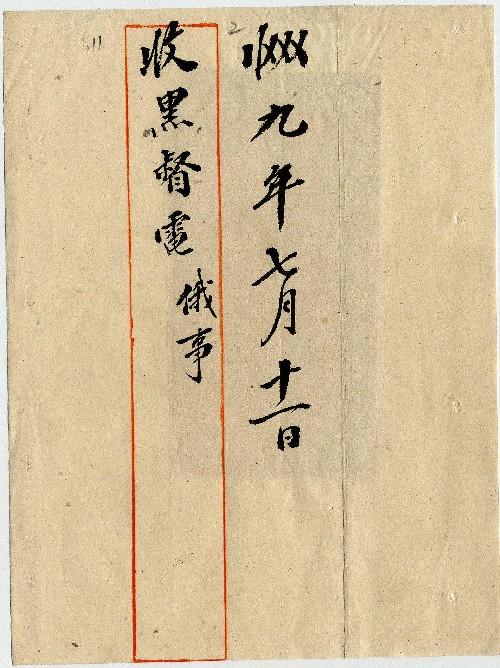 九年七月十一日
收黑督電 俄事